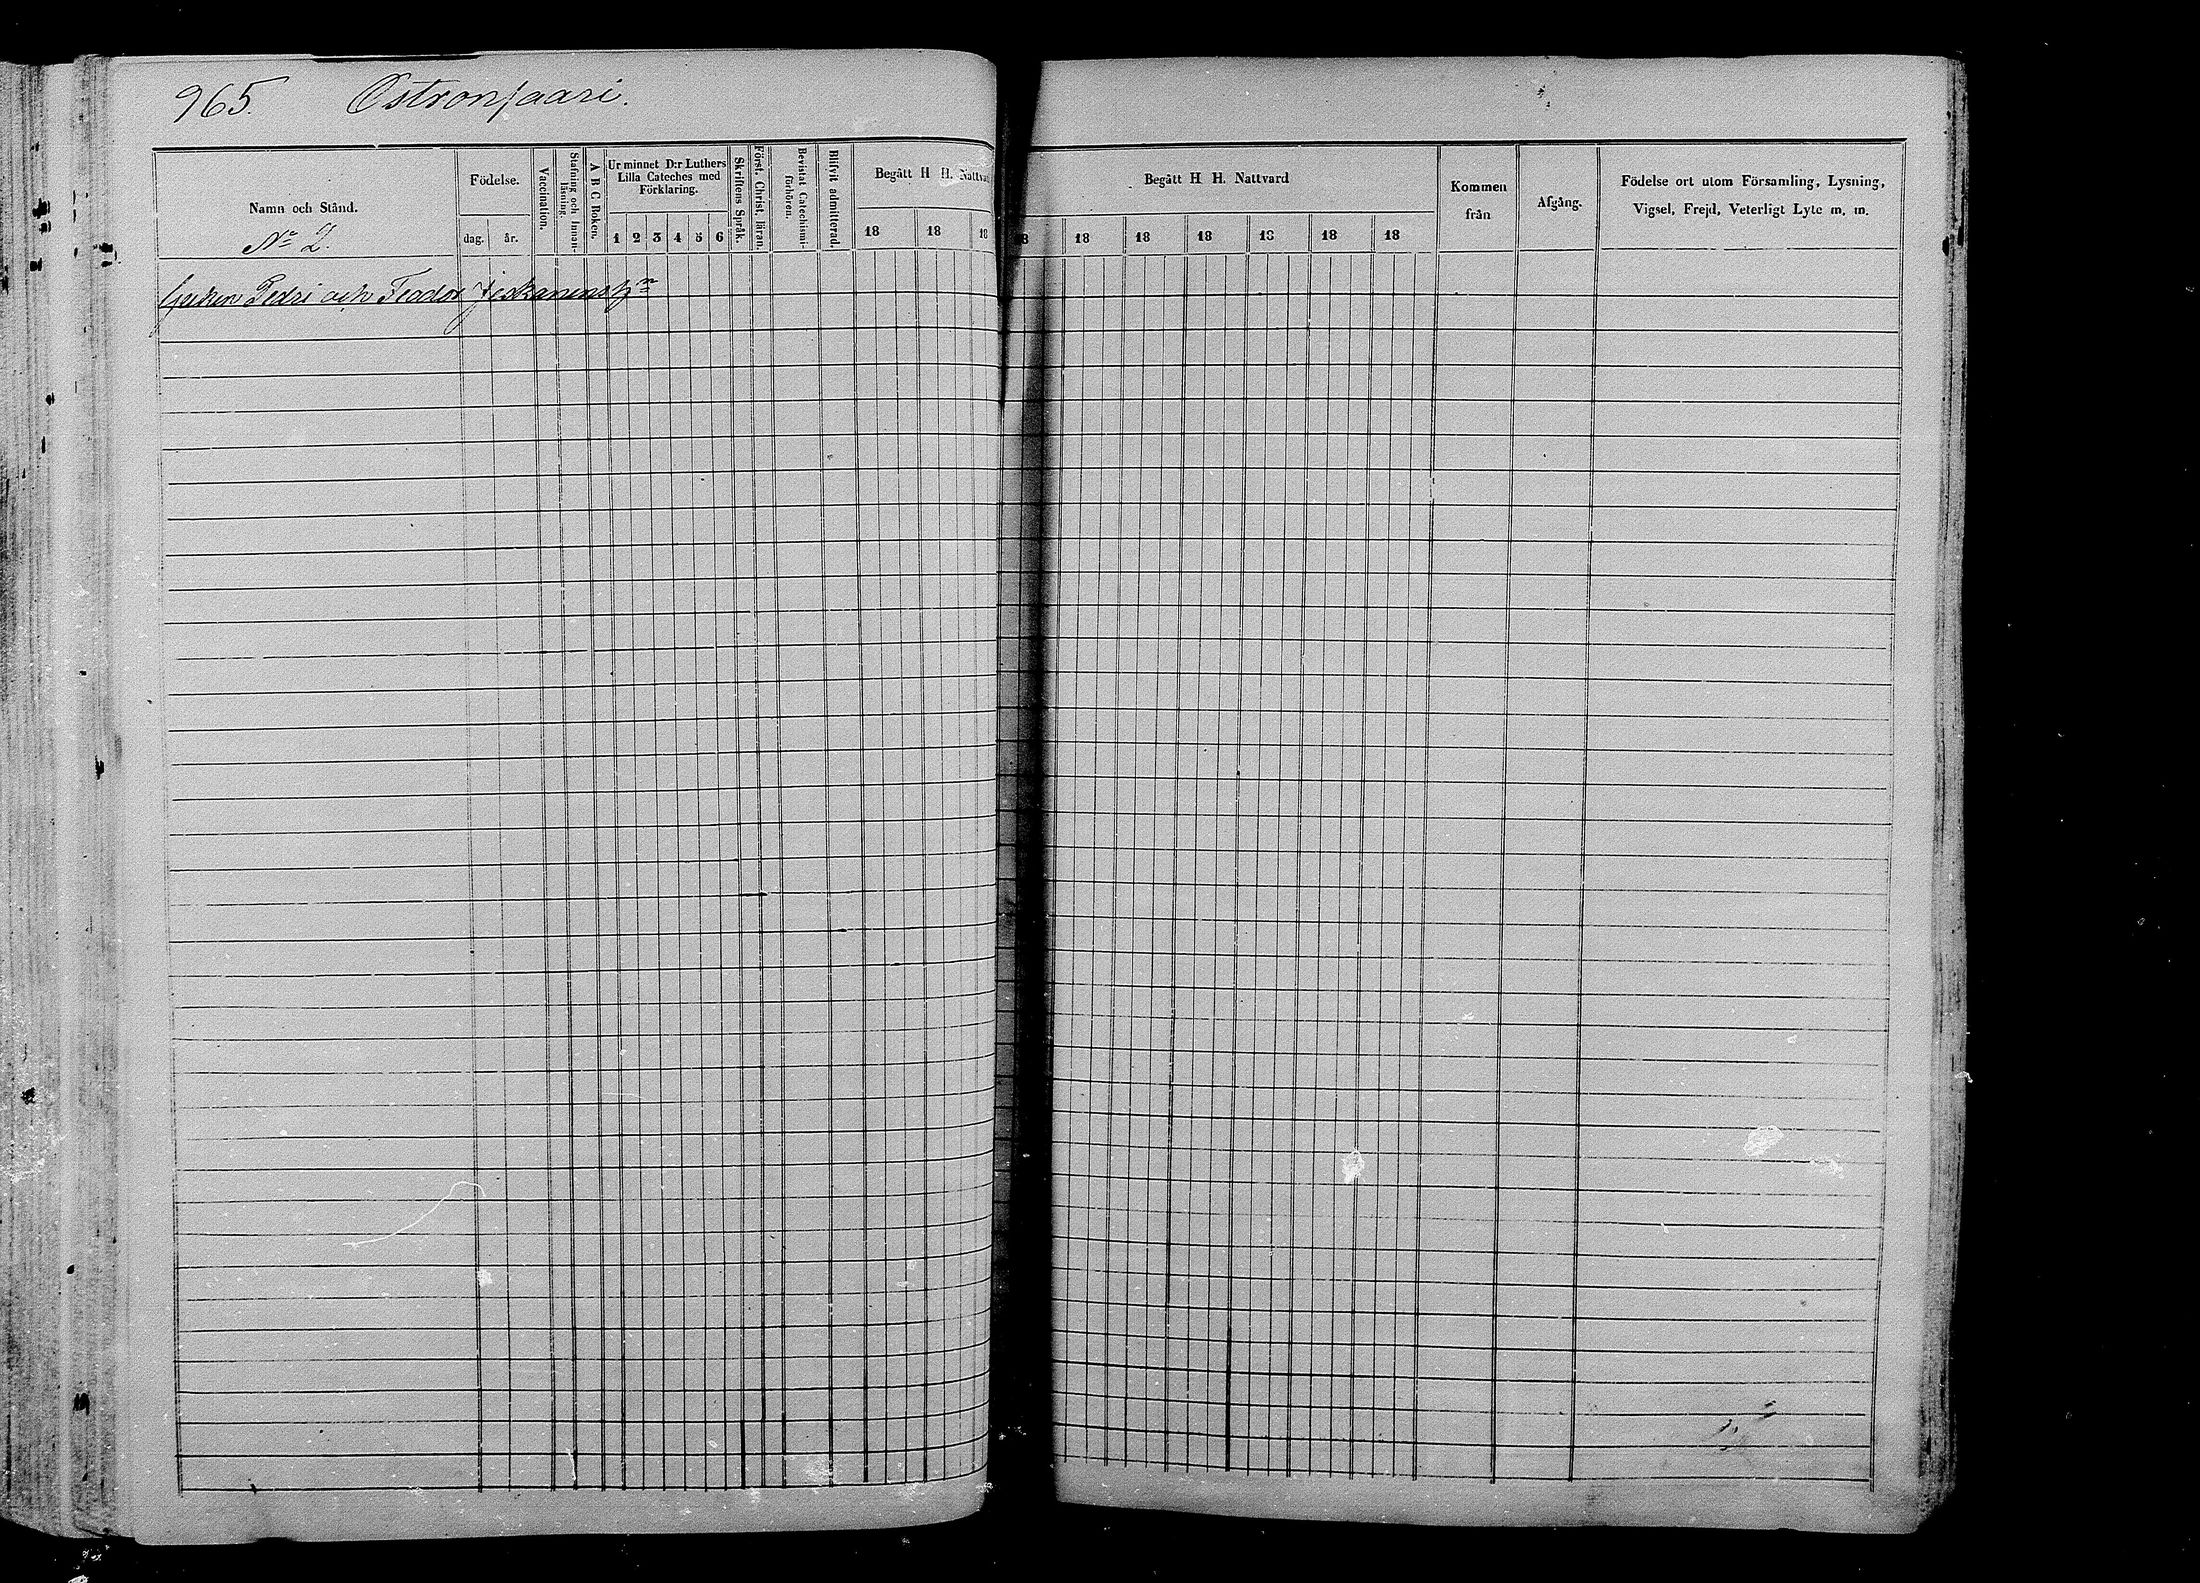 965. Ostronsaari.
Namn och Stånd.
No 2.
Födelse.
dag. år.
Vaccination.
Stafning och Innanläsning.
A B C Boken.
Ur minnet D:r Luthers
Lilla Cateches med
Förklaring.
1 2 3 4 5 6
Skriftens Språk.
Först. Christ. läran.
Bevistat Catechismiförhören.
Blifvit admitterad.
Begått H H. Nattvar
18 18 18
Pedri och Feodor
Begått H H. Nattvard
8 18 18 18 18 18 18
Kommen
från
Afgång.
Födelse ort utom Församling, Lysning,
Vigsel, Frejd, Veterligt Lyte m. m.